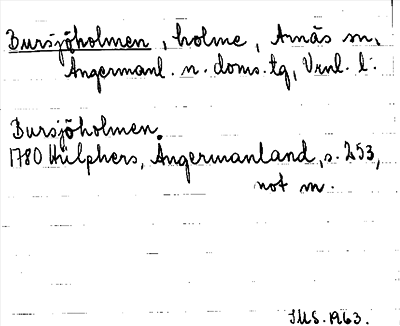 Bursjöholmen, holme, Arnäs sn,
Ångermanl. n. doms.tg, Vrnl. l.
Bursjöholmen.
1780 Hülphers, Ångermanland, s. 253,
not m.
IMS. 1963.